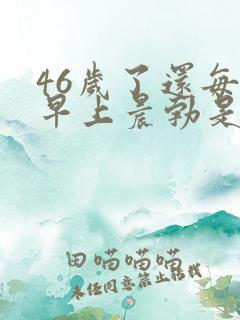 46歲了還每
早上晨勃是
田喵喵喵
未经同意禁止转载